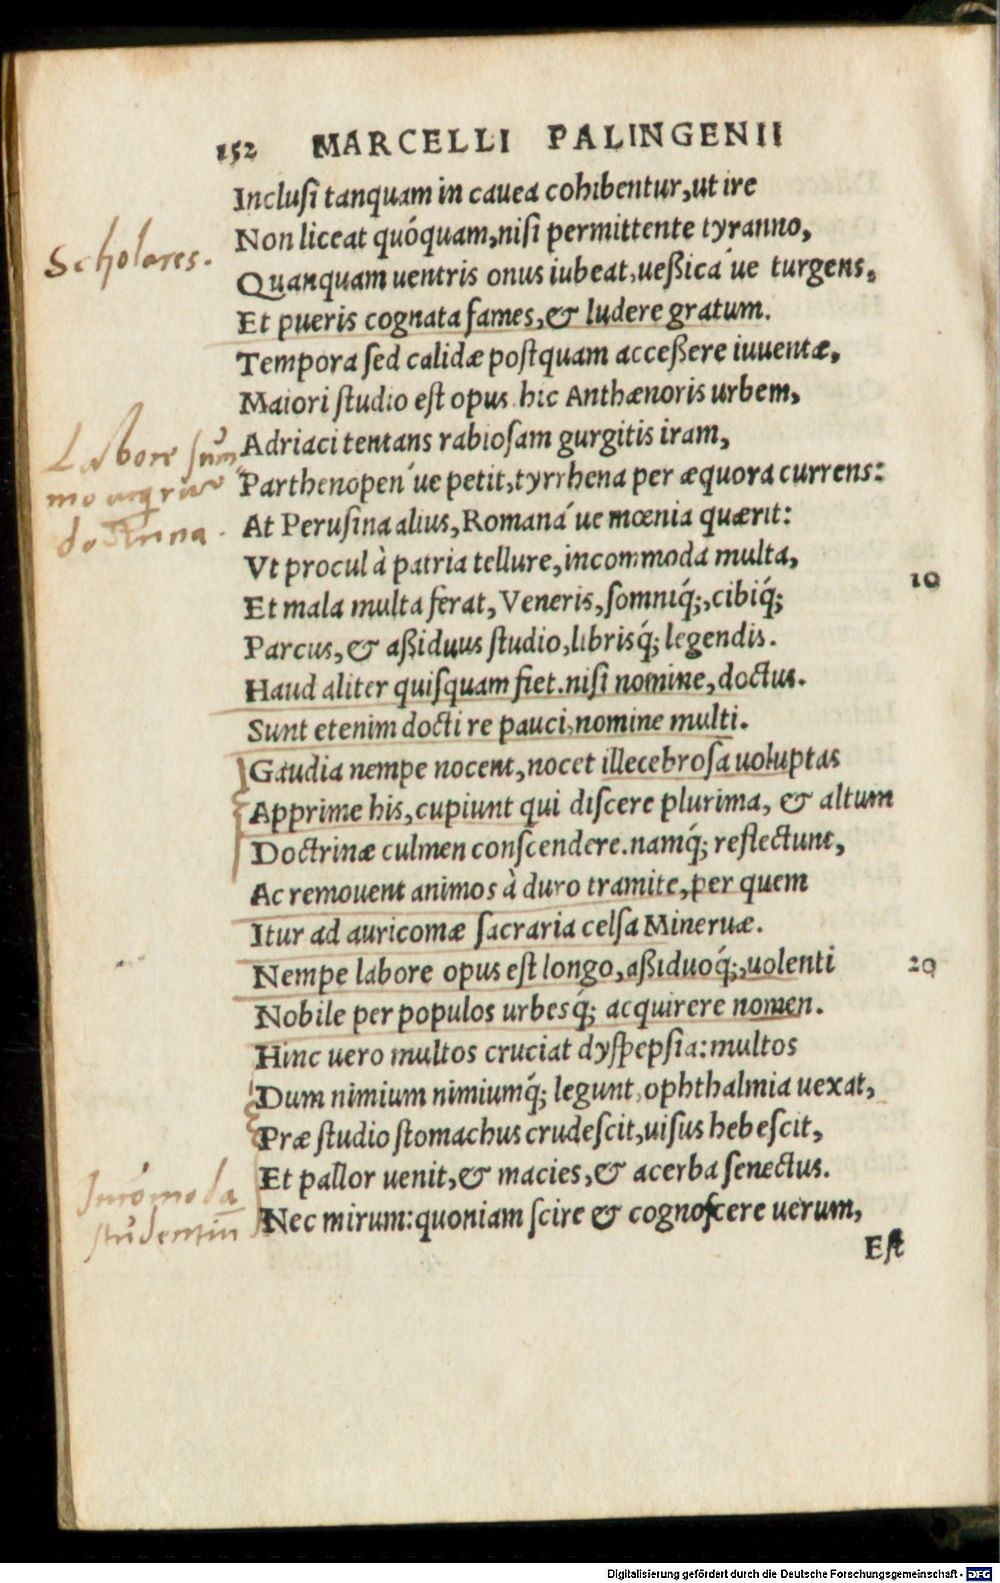 152 MARCELLI PALINGENII
Inclusi tanquam in cauea cohibentur, ut ire
Scholares.
Non liceat quóquam, nisi permittente tyranno,
Quanquam uentris onus iubeat, ueßica´ue turgens,
Et pueris cognata fames, & ludere gratum.
Tempora sed calidæ postquam acceßere iuuentæ,
Maiori studio est opus. hic Anthænoris urbem,
Labore sum
mo acqriť
doctrina.
Adriaci tentans rabiosam gurgitis iram,
Parthenopen´ue petit, tyrrhena per æquora currens:
At Perusina alius, Romaná´ue mœnia quærit:
Vt procul à patria tellure, incommoda multa,
Et mala multa ferat, Veneris, somniq́;, cibiq́; 10
Parcus, & aßiduus studio, librisq́; legendis.
Haud aliter quisquam fiet. nisi nomine, doctus.
Sunt etenim docti re pauci, nomine multi.
Gaudia nempe nocent, nocet illecebrosa uoluptas
Apprime his, cupiunt qui discere plurima, & altum
Doctrinæ culmen conscendere. namq́; reflectunt,
Ac remouent animos à duro tramite, per quem
Itur ad auricomæ sacraria celsa Mineruæ.
Nempe labore opus est longo, aßiduoq́;, uolenti 20
Nobile per populos urbesq́; acquirere nomen.
Hinc uero multos cruciat dyspepsia: multos
Dum nimium nimiumq́; legunt, ophthalmia uexat,
Præ studio stomachus crudescit, uisus hebescit,
Incōmoda
studentiū
Et pallor uenit, & macies, & acerba senectus.
Nec mirum: quoniam scire & cognoscere uerum,
Est
Digitalisierung gefördert durch die Deutsche Forschungsgemeinschaft - DFG